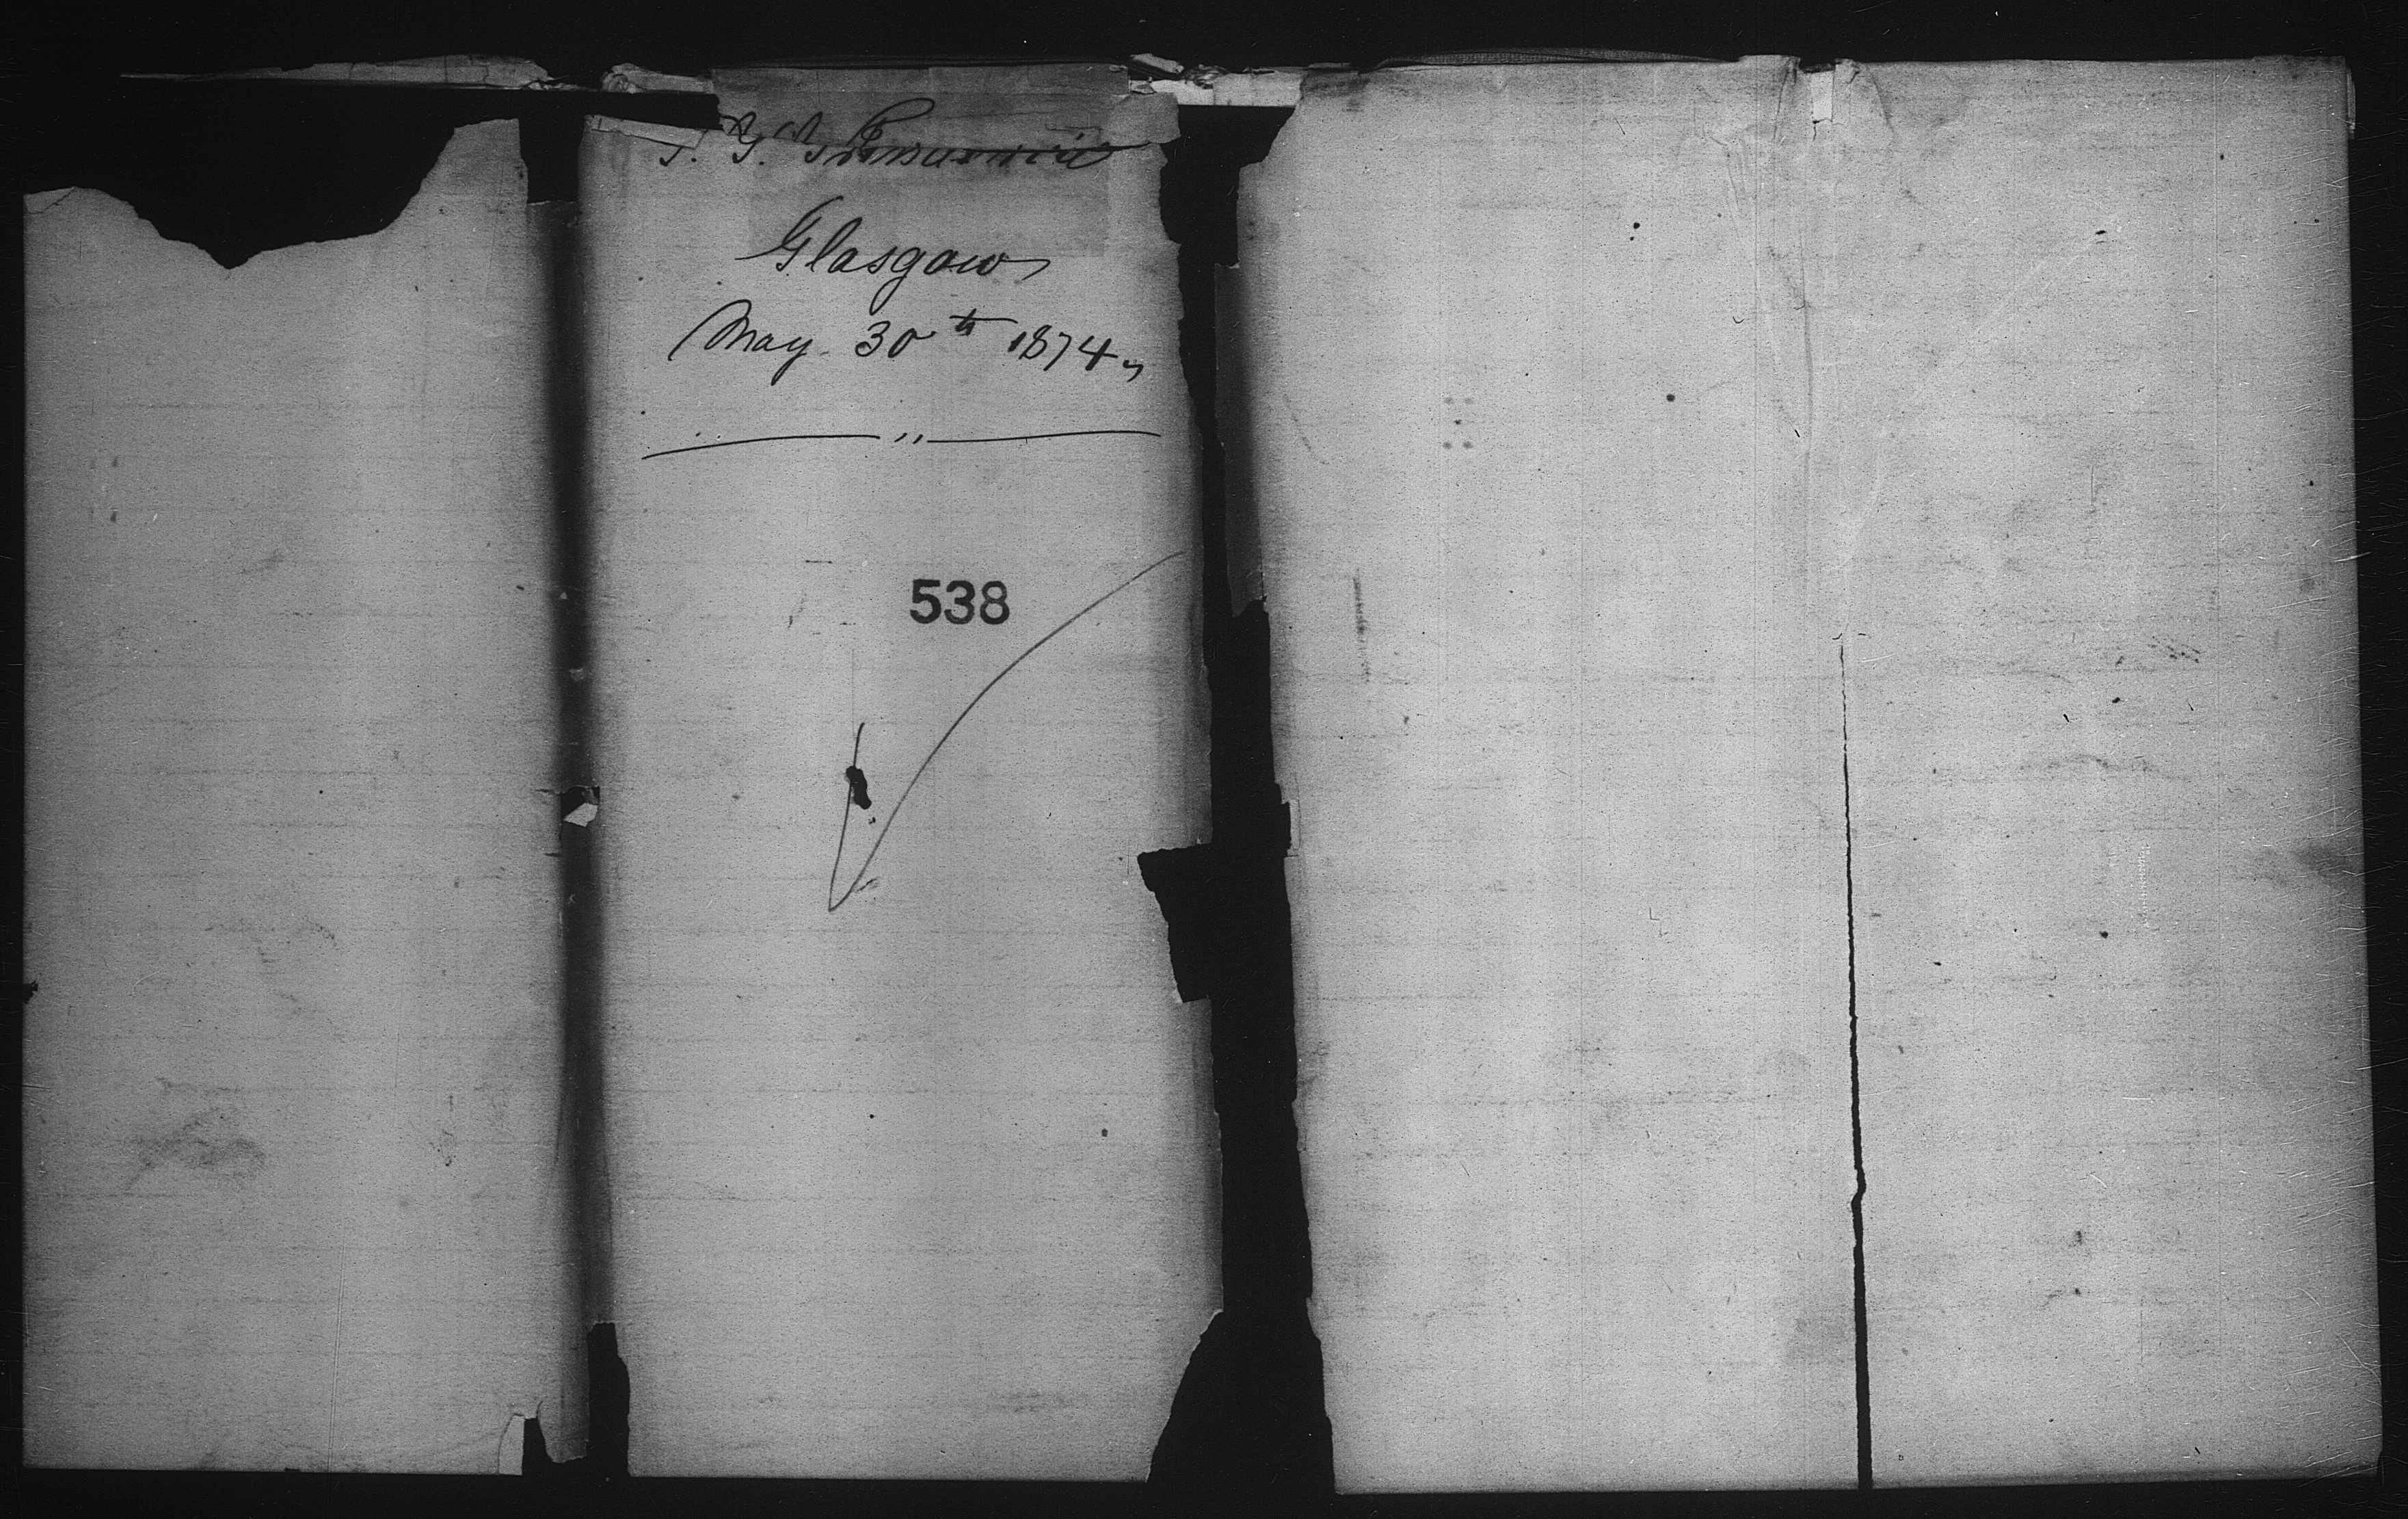 Glasgow
May 30th 1874
538